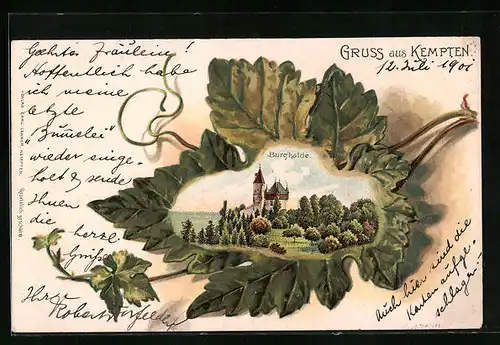 GRUSS AUS KEMPTEN.
12. Juli 1901
Geehrtes Fräulein!
Hoffentlich habe
ich meine
letzte
wieder einge-
holt & sende
Ihnen
die
herzl.
Grüße
Ihr
Burghalde.
Auch hier sind die
Karten aufge-
schlagen!